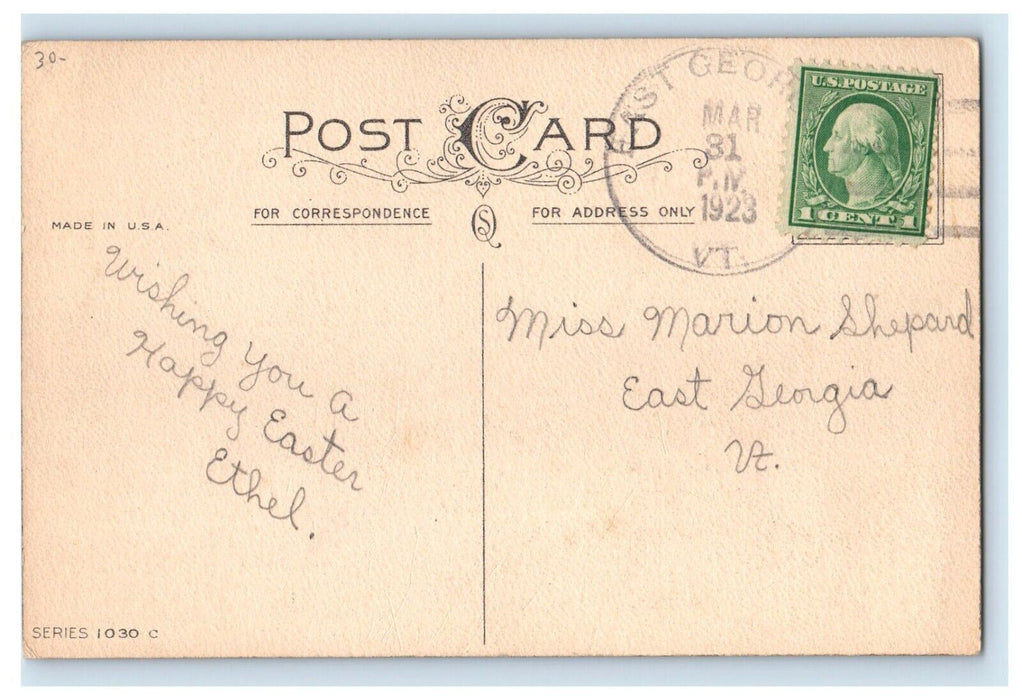 30-
POST CARD
FOR CORRESPONDENCE
FOR ADDRESS ONLY
MADE IN U.S.A.
EAST GEOR
MAR
31
P.M.
1923
VT.
U.S. POSTAGE
1 CENT 1
Wishing you a
Happy Easter
Ethel.
Miss Marion Shepard
East Georgia
Vt.
SERIES 1030 C